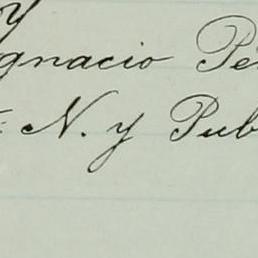 y
gnacio Pe
N. y Pub